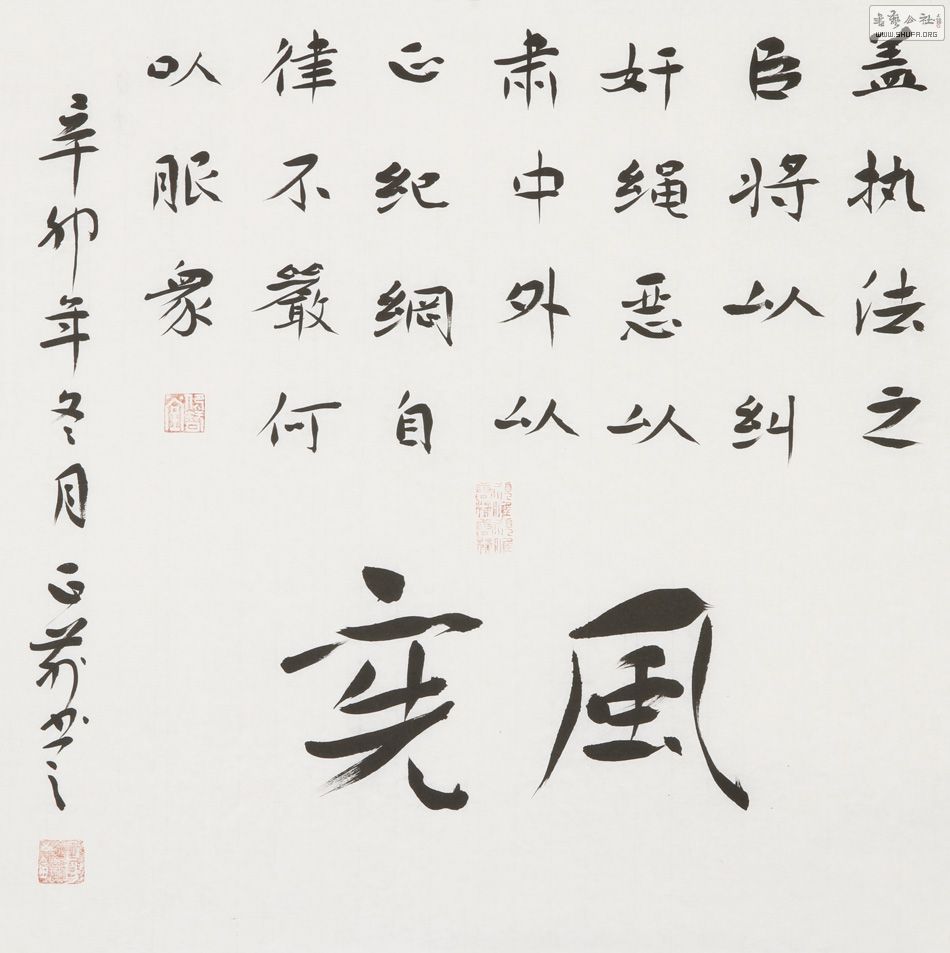 盖执法之
臣将以纠
奸绳恶以
肃中外以
正纪綱自
律不嚴何
以服衆
風宪
辛卯年冬月正书之
书艺公社
WWW.SHUFA.ORG